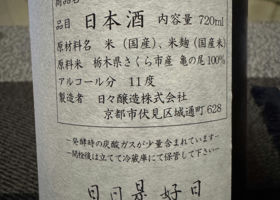 品目 日本酒 内容量 720ml
原材料名 米（国産）、米麹（国産米）
原料米 栃木県さくら市産 亀の尾100%
アルコール分 11度
製造者 日々醸造株式会社
京都市伏見区城通町628
―発酵時の炭酸ガスが少量含まれています―
―開栓後は立てて冷蔵庫にて保管して下さい―
日日是好日